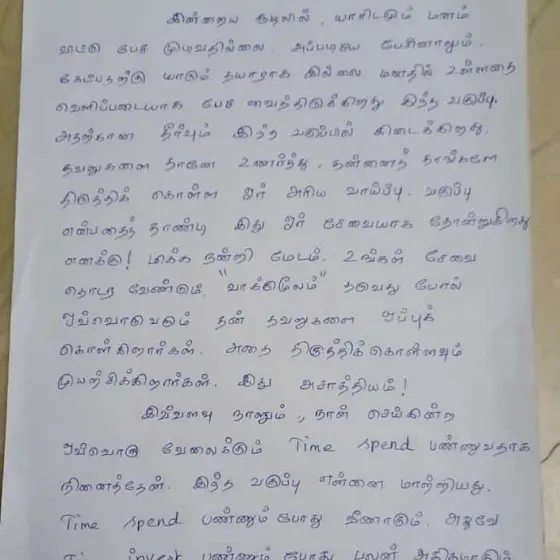 இன்றைய சூழலில், யாரிடமும் மனம்
விட்டு பேச முடிவதில்லை. அப்படியே பேசினாலும்,
கேட்பதற்கு யாரும் தயாராக இல்லை. மனதில் உள்ளதை
வெளிப்படையாக பேச வைத்திருக்கிறது இந்த வகுப்பு.
அதற்கான தீர்வும் இந்த வகுப்பில் கிடைக்கிறது.
தவறுகளை தானே உணர்ந்து, தன்னைத் தாங்களே
திருத்திக் கொள்ள ஓர் அரிய வாய்ப்பு. வகுப்பு
என்பதைத் தாண்டி இது ஓர் சேவையாக தோன்றுகிறது
எனக்கு! மிக்க நன்றி மேடம். உங்கள் சேவை
தொடர வேண்டும். "வாக்குமூலம்" தருவது போல்
ஒவ்வொருவரும் தன் தவறுகளை ஒப்புக்
கொள்கிறார்கள். அதை திருத்திக்கொள்ளவும்
முயற்சிக்கிறார்கள். இது அசாத்தியம்!
இவ்வளவு நாளும், நான் செய்கின்ற
ஒவ்வொரு வேலைக்கும் Time spend பண்ணுவதாக
நினைத்தேன். இந்த வகுப்பு என்னை மாற்றியது.
Time spend பண்ணும் போது வீணாகும். அதுவே
Time invest பண்ணும் போது பலன் அதிகமாகும்